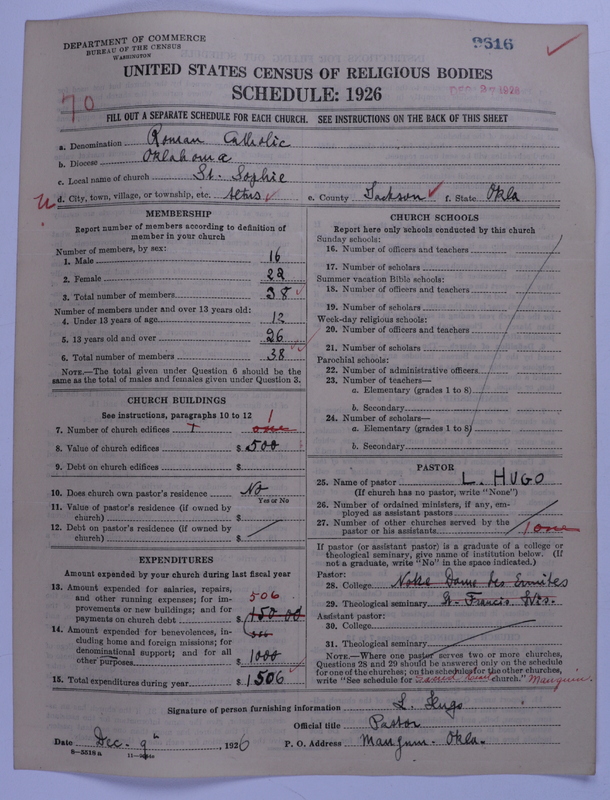 DEPARTMENT OF COMMERCE
BUREAU OF THE CENSUS
WASHINGTON
9616
UNITED STATES CENSUS OF RELIGIOUS BODIES
SCHEDULE: 1926
DEC 27 1926
70
FILL OUT A SEPARATE SCHEDULE FOR EACH CHURCH. SEE INSTRUCTIONS ON THE BACK OF THIS SHEET
a. Denomination Roman Catholic
b. Diocese Oklahoma
c. Local name of church St. Sophie
d. City, town, village, or township, etc. Altus e. County Jackson f. State Okla
MEMBERSHIP
Report number of members according to definition of
member in your church
Number of members, by sex:
1. Male 16
2. Female 22
3. Total number of members 38
Number of members under and over 13 years old:
4. Under 13 years of age 12
5. 13 years old and over 26
6. Total number of members 38
NOTE.—The total given under Question 6 should be the
same as the total of males and females given under Question 3.
CHURCH BUILDINGS
See instructions, paragraphs 10 to 12
1
7. Number of church edifices one
8. Value of church edifices $ 500
9. Debt on church edifices $
10. Does church own pastor's residence No
Yes or No
11. Value of pastor's residence (if owned by
church) $
12. Debt on pastor's residence (if owned by
church) $
EXPENDITURES
Amount expended by your church during last fiscal year
13. Amount expended for salaries, repairs, 506
and other running expenses; for im-
provements or new buildings; and for
payments on church debt $ 150 00
14. Amount expended for benevolences, in-
cluding home and foreign missions; for
denominational support; and for all
other purposes $ 1000
15. Total expenditures during year $ 1506
CHURCH SCHOOLS
Report here only schools conducted by this church
Sunday schools:
16. Number of officers and teachers
17. Number of scholars
Summer vacation Bible schools:
18. Number of officers and teachers
19. Number of scholars
Week-day religious schools:
20. Number of officers and teachers
21. Number of scholars
Parochial schools:
22. Number of administrative officers
23. Number of teachers—
a. Elementary (grades 1 to 8)
b. Secondary
24. Number of scholars—
a. Elementary (grades 1 to 8)
b. Secondary
PASTOR
25. Name of pastor L. HUGO
(If church has no pastor, write "None")
26. Number of ordained ministers, if any, em-
ployed as assistant pastors
27. Number of other churches served by the
pastor or his assistants 1 one
If pastor (or assistant pastor) is a graduate of a college or
theological seminary, give name of institution below. (If
not a graduate, write "No" in the space indicated.)
Pastor:
28. College Notre Dame des Ermites
29. Theological seminary St. Francis Wis.
Assistant pastor:
30. College
31. Theological seminary
NOTE.—Where one pastor serves two or more churches,
Questions 28 and 29 should be answered only on the schedule
for one of the churches; on the schedules for the other churches,
write "See schedule for church." Mangum.
Signature of person furnishing information L. Hugo
Official title Pastor
Date Dec. 9th, 1926 P. O. Address Mangum. Okla.
8—5518a